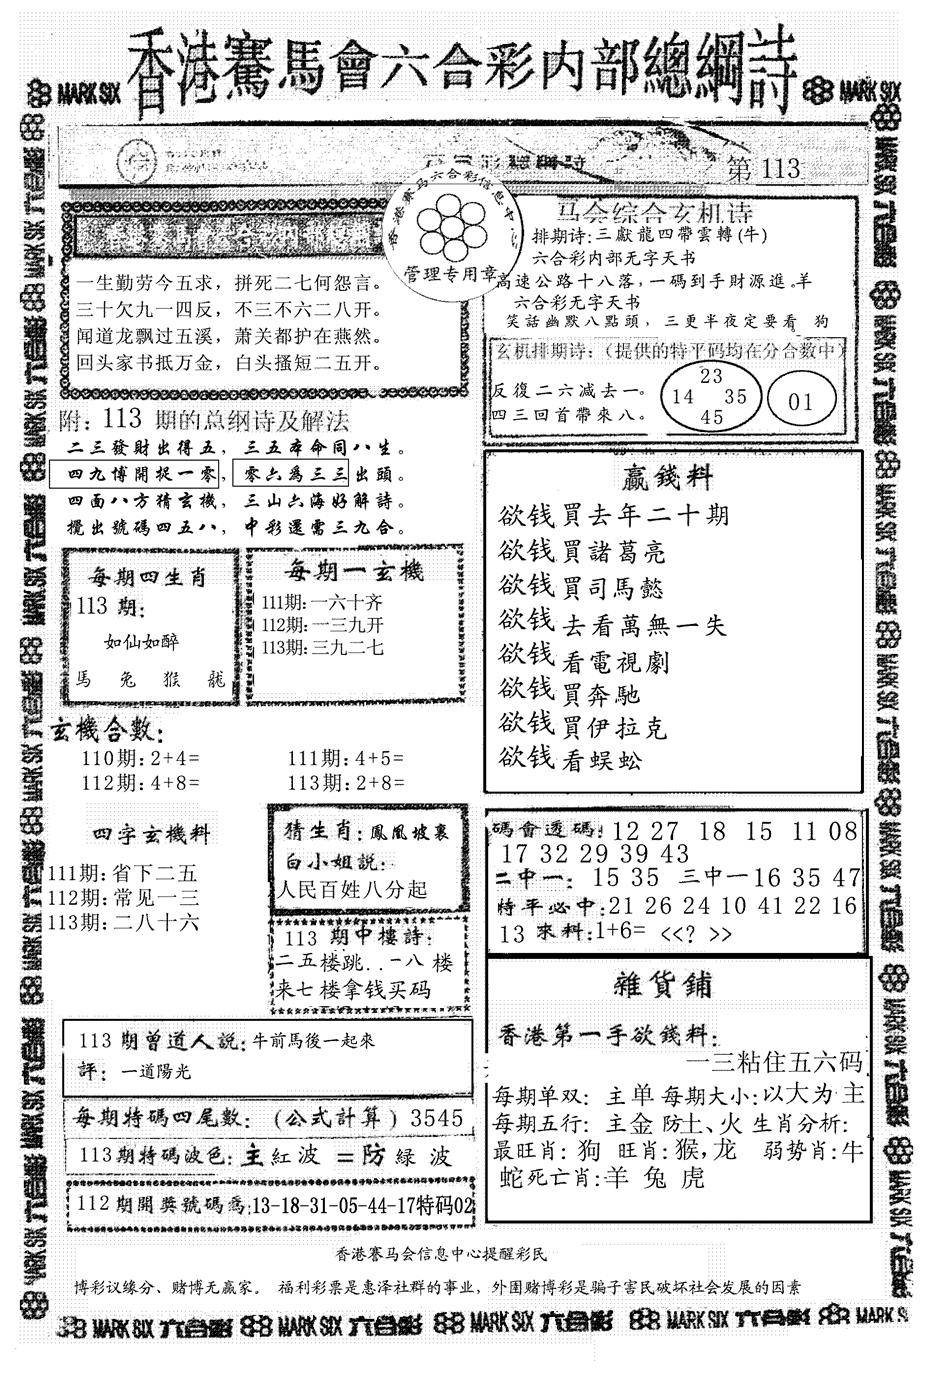 香港賽馬會六合彩内部總綱詩
MARK SIX
MARK SIX
第 113
香港赛马六合彩信息中
管理专用章
一生勤劳今五求，拼死二七何怨言。
三十欠九一四反，不三不六二八开。
闻道龙飘过五溪，萧关都护在燕然。
回头家书抵万金，白头搔短二五开。
马会综合玄机诗
排期诗:三獻龍四帶雲轉(牛)
六合彩内部无字天书
高速公路十八落,一碼到手財源進.羊
六合彩无字天书
笑話幽默八點頭，三更半夜定要看 狗
玄机排期诗:（提供的特平码均在分合數中）
反復二六减去一。
四三回首帶來八。
23
14 35
45
01
附: 113 期的总纲诗及解法
二三發財出得五，三五本命同八生。
四九博開捉一零，零六為三三出頭。
四面八方猜玄機，三山六海好解詩。
攪出號碼四五八，中彩還需三九合。
每期四生肖
113 期:
如仙如醉
馬 兔 猴 龍
每期一玄機
111期:一六十齐
112期:一三九开
113期:三九二七
赢錢料
欲钱買去年二十期
欲钱買諸葛亮
欲钱買司馬懿
欲钱去看萬無一失
欲钱看電視劇
欲钱買奔馳
欲钱買伊拉克
欲钱看蜈蚣
玄機合數:
110期:2+4= 111期:4+5=
112期:4+8= 113期:2+8=
四字玄機料
111期:省下二五
112期:常见一三
113期:二八十六
猜生肖:鳳凰坡裏
白小姐説:
人民百姓八分起
113 期中樓詩:
二五楼跳..一八 楼
来七楼拿钱买码
碼會透碼: 12 27 18 15 11 08
17 32 29 39 43
二中一: 15 35 三中一16 35 47
特平必中:21 26 24 10 41 22 16
13 來料:1+6= <<? >>
雜貨鋪
香港第一手欲錢料:
一三粘住五六码
每期单双: 主单 每期大小:以大为主
每期五行: 主金 防土、火 生肖分析:
最旺肖: 狗 旺肖:猴,龙 弱势肖:牛
蛇死亡肖:羊 兔 虎
113 期曾道人説:牛前馬後一起來
評: 一道陽光
每期特碼四尾數: (公式計算) 3545
113期特碼波色:主紅波 =防 緑 波
112期開獎號碼爲:13-18-31-05-44-17特码02
香港赛马会信息中心提醒彩民
博彩议缘分、赌博无赢家。 福利彩票是惠泽社群的事业，外围赌博彩是骗子害民破坏社会发展的因素
MARK SIX 六合彩 MARK SIX 六合彩 MARK SIX 六合彩 MARK SIX 六合彩 MARK SIX